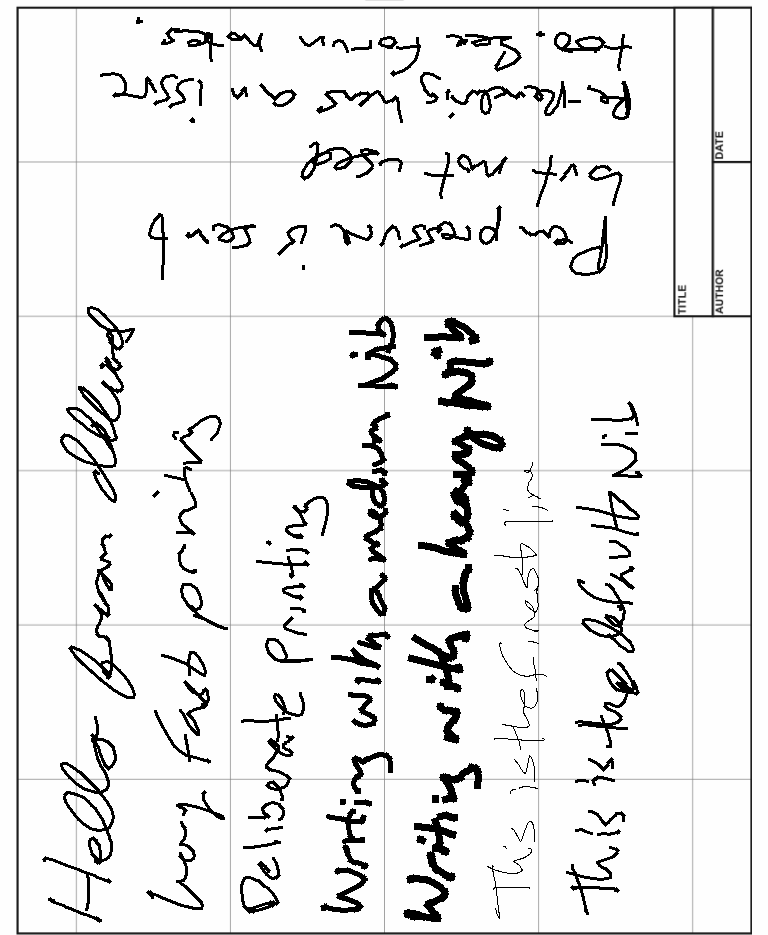 Hello from
Very fast printing
Deliberate Printing
Writing with a medium Nib
Writing with a heavy Nib
This is the finest line
This is the default Nib
Pen pressure is sent
but not used
has an issue
too. See forum notes.
TITLE
AUTHOR
DATE